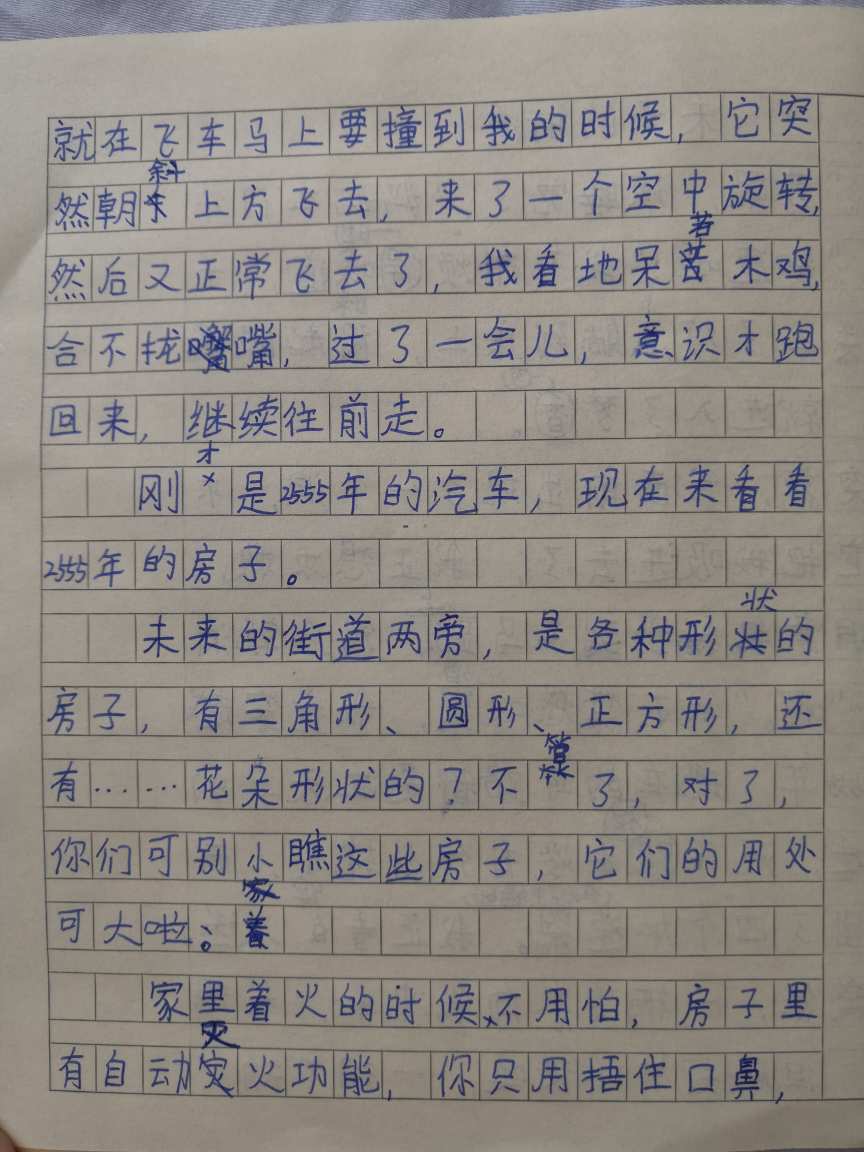 就在飞车马上要撞到我的时候，它突
然朝斜上方飞去，来了一个空中旋转，
然后又正常飞去了，我看地呆若木鸡，
合不拢嘴，过了一会儿，意识才跑
回来，继续往前走。
刚才是2555年的汽车，现在来看看
2555年的房子。
未来的街道两旁，是各种形状的
房子，有三角形、圆形、正方形，还
有……花朵形状的？不算了，对了，
你们可别小瞧这些房子，它们的用处
可大啦。
家里着火的时候，不用怕，房子里
有自动灭火功能，你只用捂住口鼻，